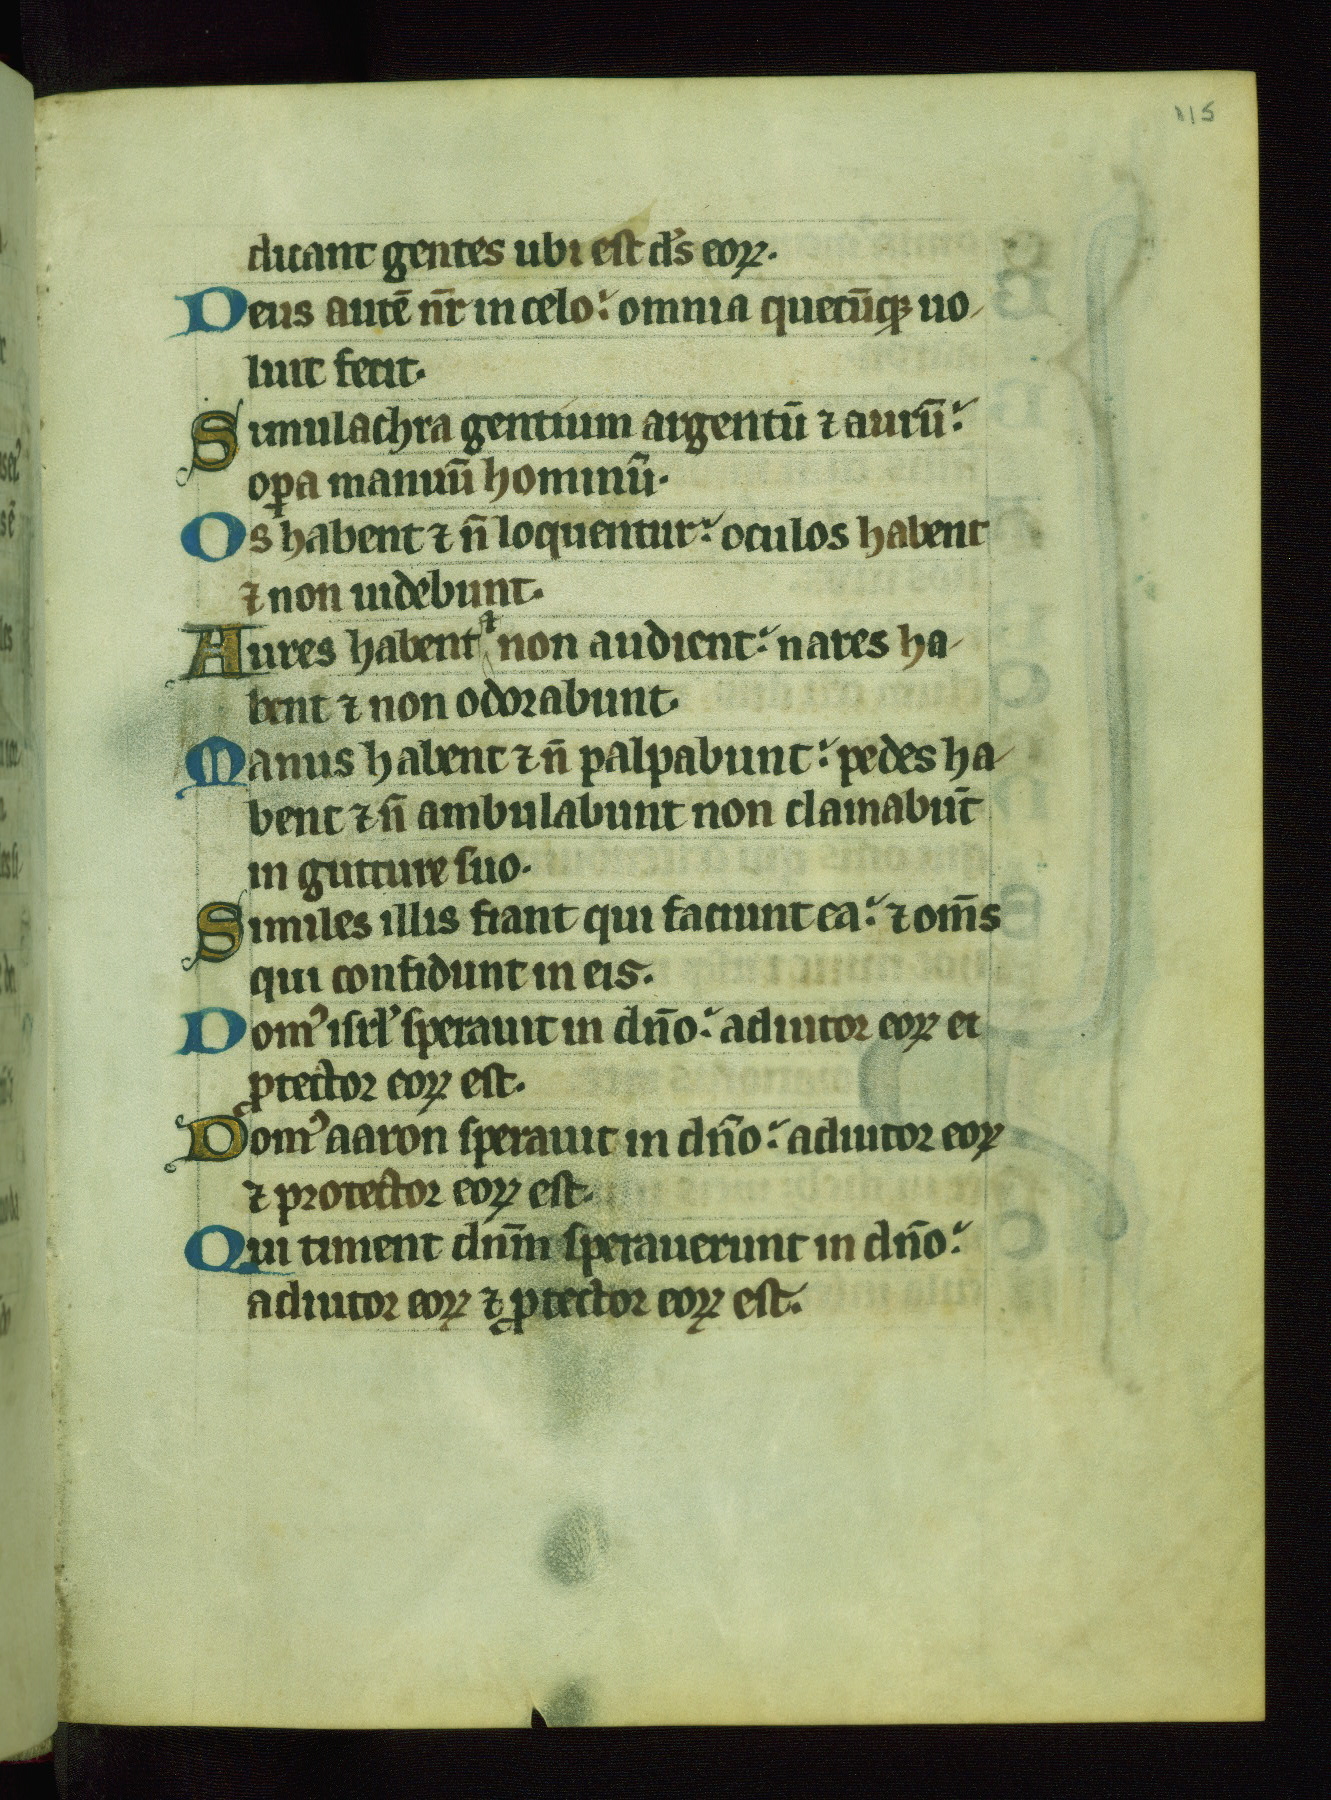 115
dicant gentes ubi est ds̄ eoꝝ.
Deus autē nr̄ in celo: omnia quecūqꝫ uo-
luit fecit.
Simulachra gentium argentū ⁊ aurū:
oꝑa manuū hominū.
Os habent ⁊ n̄ loquentur: oculos habent
⁊ non uidebunt.
Aures habent ⁊ non audient: nares ha-
bent ⁊ non odorabunt.
Manus habent ⁊ n̄ palpabunt: pedes ha-
bent ⁊ n̄ ambulabunt non clamabūt
in gutture suo.
Similes illis fiant qui faciunt ea: ⁊ om̄s
qui confidunt in eis.
Domꝰ isrl̓ sperauit in dn̄o: adiutor eoꝝ et
ꝓtector eoꝝ est.
Domꝰ aaron sperauit in dn̄o: adiutor eoꝝ
⁊ protector eoꝝ est.
Qui timent dn̄m sperauerunt in dn̄o:
adiutor eoꝝ ⁊ ꝓtector eoꝝ est.